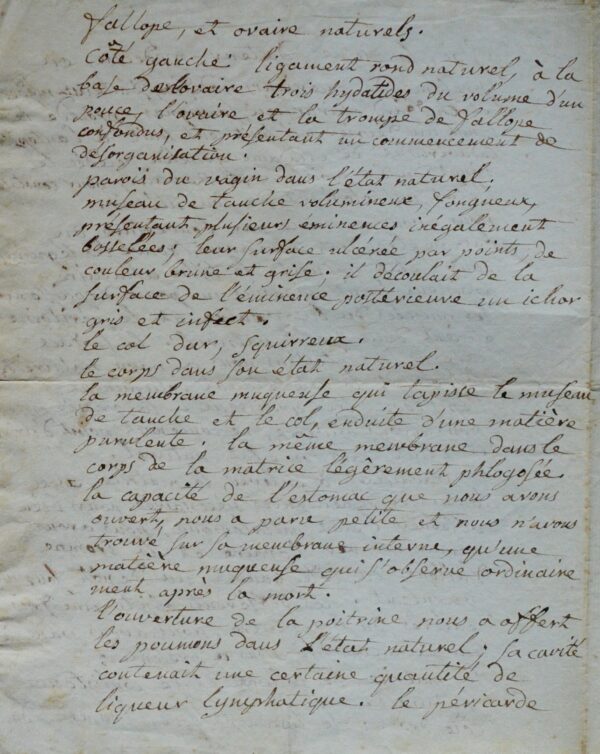 fallope, et ovaire naturels.
Côté gauche: ligament rond naturel, à la
base de l'ovaire trois hydatides du volume d'un
pouce, l'ovaire et la trompe de fallope
confondus, et présentant un commencement de
desorganisation.
parois du vagin dans l'état naturel,
museau de tanche volumineux, fongueux,
présentant plusieurs éminences inégalement
bosselées; leur surface ulcérée par points, de
couleur brune et grise. il découlait de la
surface de l'éminence postérieure un ichor
gris et infect.
le col dur, squirreux.
le corps dans son état naturel.
la membrane muqueuse qui tapisse le museau
de tanche et le col, enduite d'une matière
purulente. la même membrane dans le
corps de la matrice légèrement phlogosée.
la capacité de l'estomac que nous avons
ouvert, nous a paru petite et nous n'avons
trouvé sur sa membrane interne, qu'une
matière muqueuse qui s'observe ordinaire
ment après la mort.
l'ouverture de la poitrine nous a offert
les poumons dans l'état naturel; sa cavité
contenait une certaine quantité de
liqueur lymphatique. le péricarde